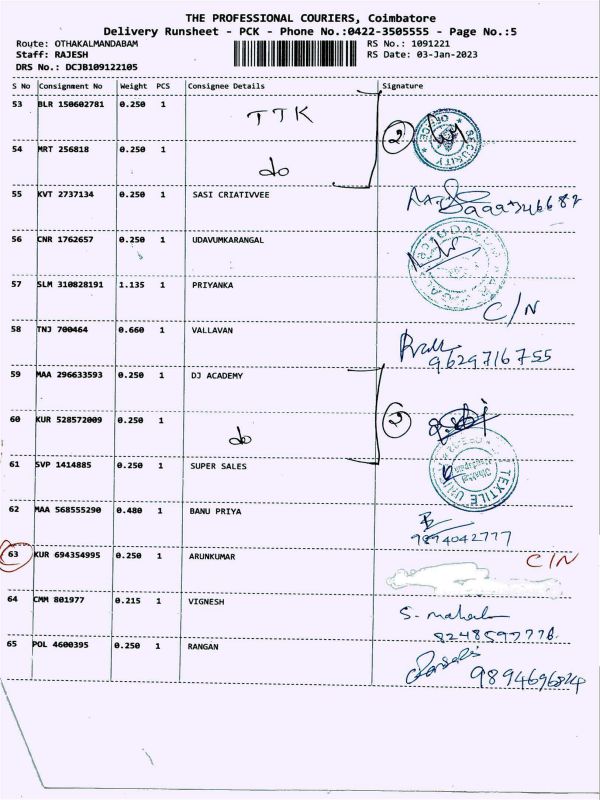 THE PROFESSIONAL COURIERS, Coimbatore
Delivery Runsheet - PCK - Phone No.:0422-3505555 - Page No.:5
Route: OTHAKALMANDABAM RS No.: 1091221
Staff: RAJESH RS Date: 03-Jan-2023
DRS No.: DCJB109122105
S No Consignment No Weight PCS Consignee Details Signature
53 BLR 150602781 0.250 1 TTK 2
SECURITY OFFICE
54 MRT 256818 0.250 1 do
55 KVT 2737134 0.250 1 SASI CRIATIVVEE
56 CNR 1762657 0.250 1 UDAVUMKARANGAL
57 SLM 310828191 1.135 1 PRIYANKA C/N
58 TNJ 700464 0.660 1 VALLAVAN 9629716755
59 MAA 296633593 0.250 1 DJ ACADEMY
60 KUR 528572009 0.250 1 do
61 SVP 1414885 0.250 1 SUPER SALES TEXTILE UNIT
62 MAA 568555290 0.480 1 BANU PRIYA 9894042777
63 KUR 694354995 0.250 1 ARUNKUMAR C/N
64 CMM 801977 0.215 1 VIGNESH S. 8248597776
65 POL 4600395 0.250 1 RANGAN 9894696824